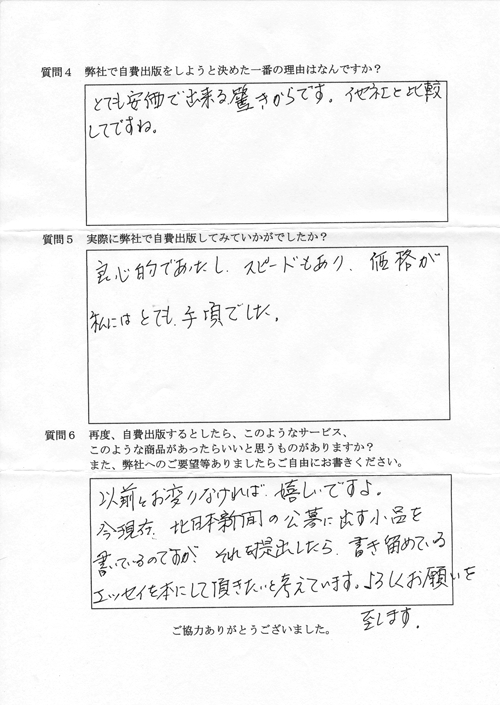 質問4 弊社で自費出版をしようと決めた一番の理由はなんですか?
とても安価で出来る驚きからです。他社と比較
してですね。
質問5 実際に弊社で自費出版してみていかがでしたか?
良心的であたし、スピードもあり、価格が
私にはとても、手頃でした。
質問6 再度、自費出版するとしたら、このようなサービス、
このような商品があったらいいと思うものがありますか?
また、弊社へのご要望等ありましたらご自由にお書きください。
以前とお変りなければ、嬉しいですよ。
今現在、北日本新聞の公募に出す小品を
書いているのですが、それを提出したら、書き留めている
エッセイを本にして頂きたいと考えています。よろしくお願いを
至します。
ご協力ありがとうございました。